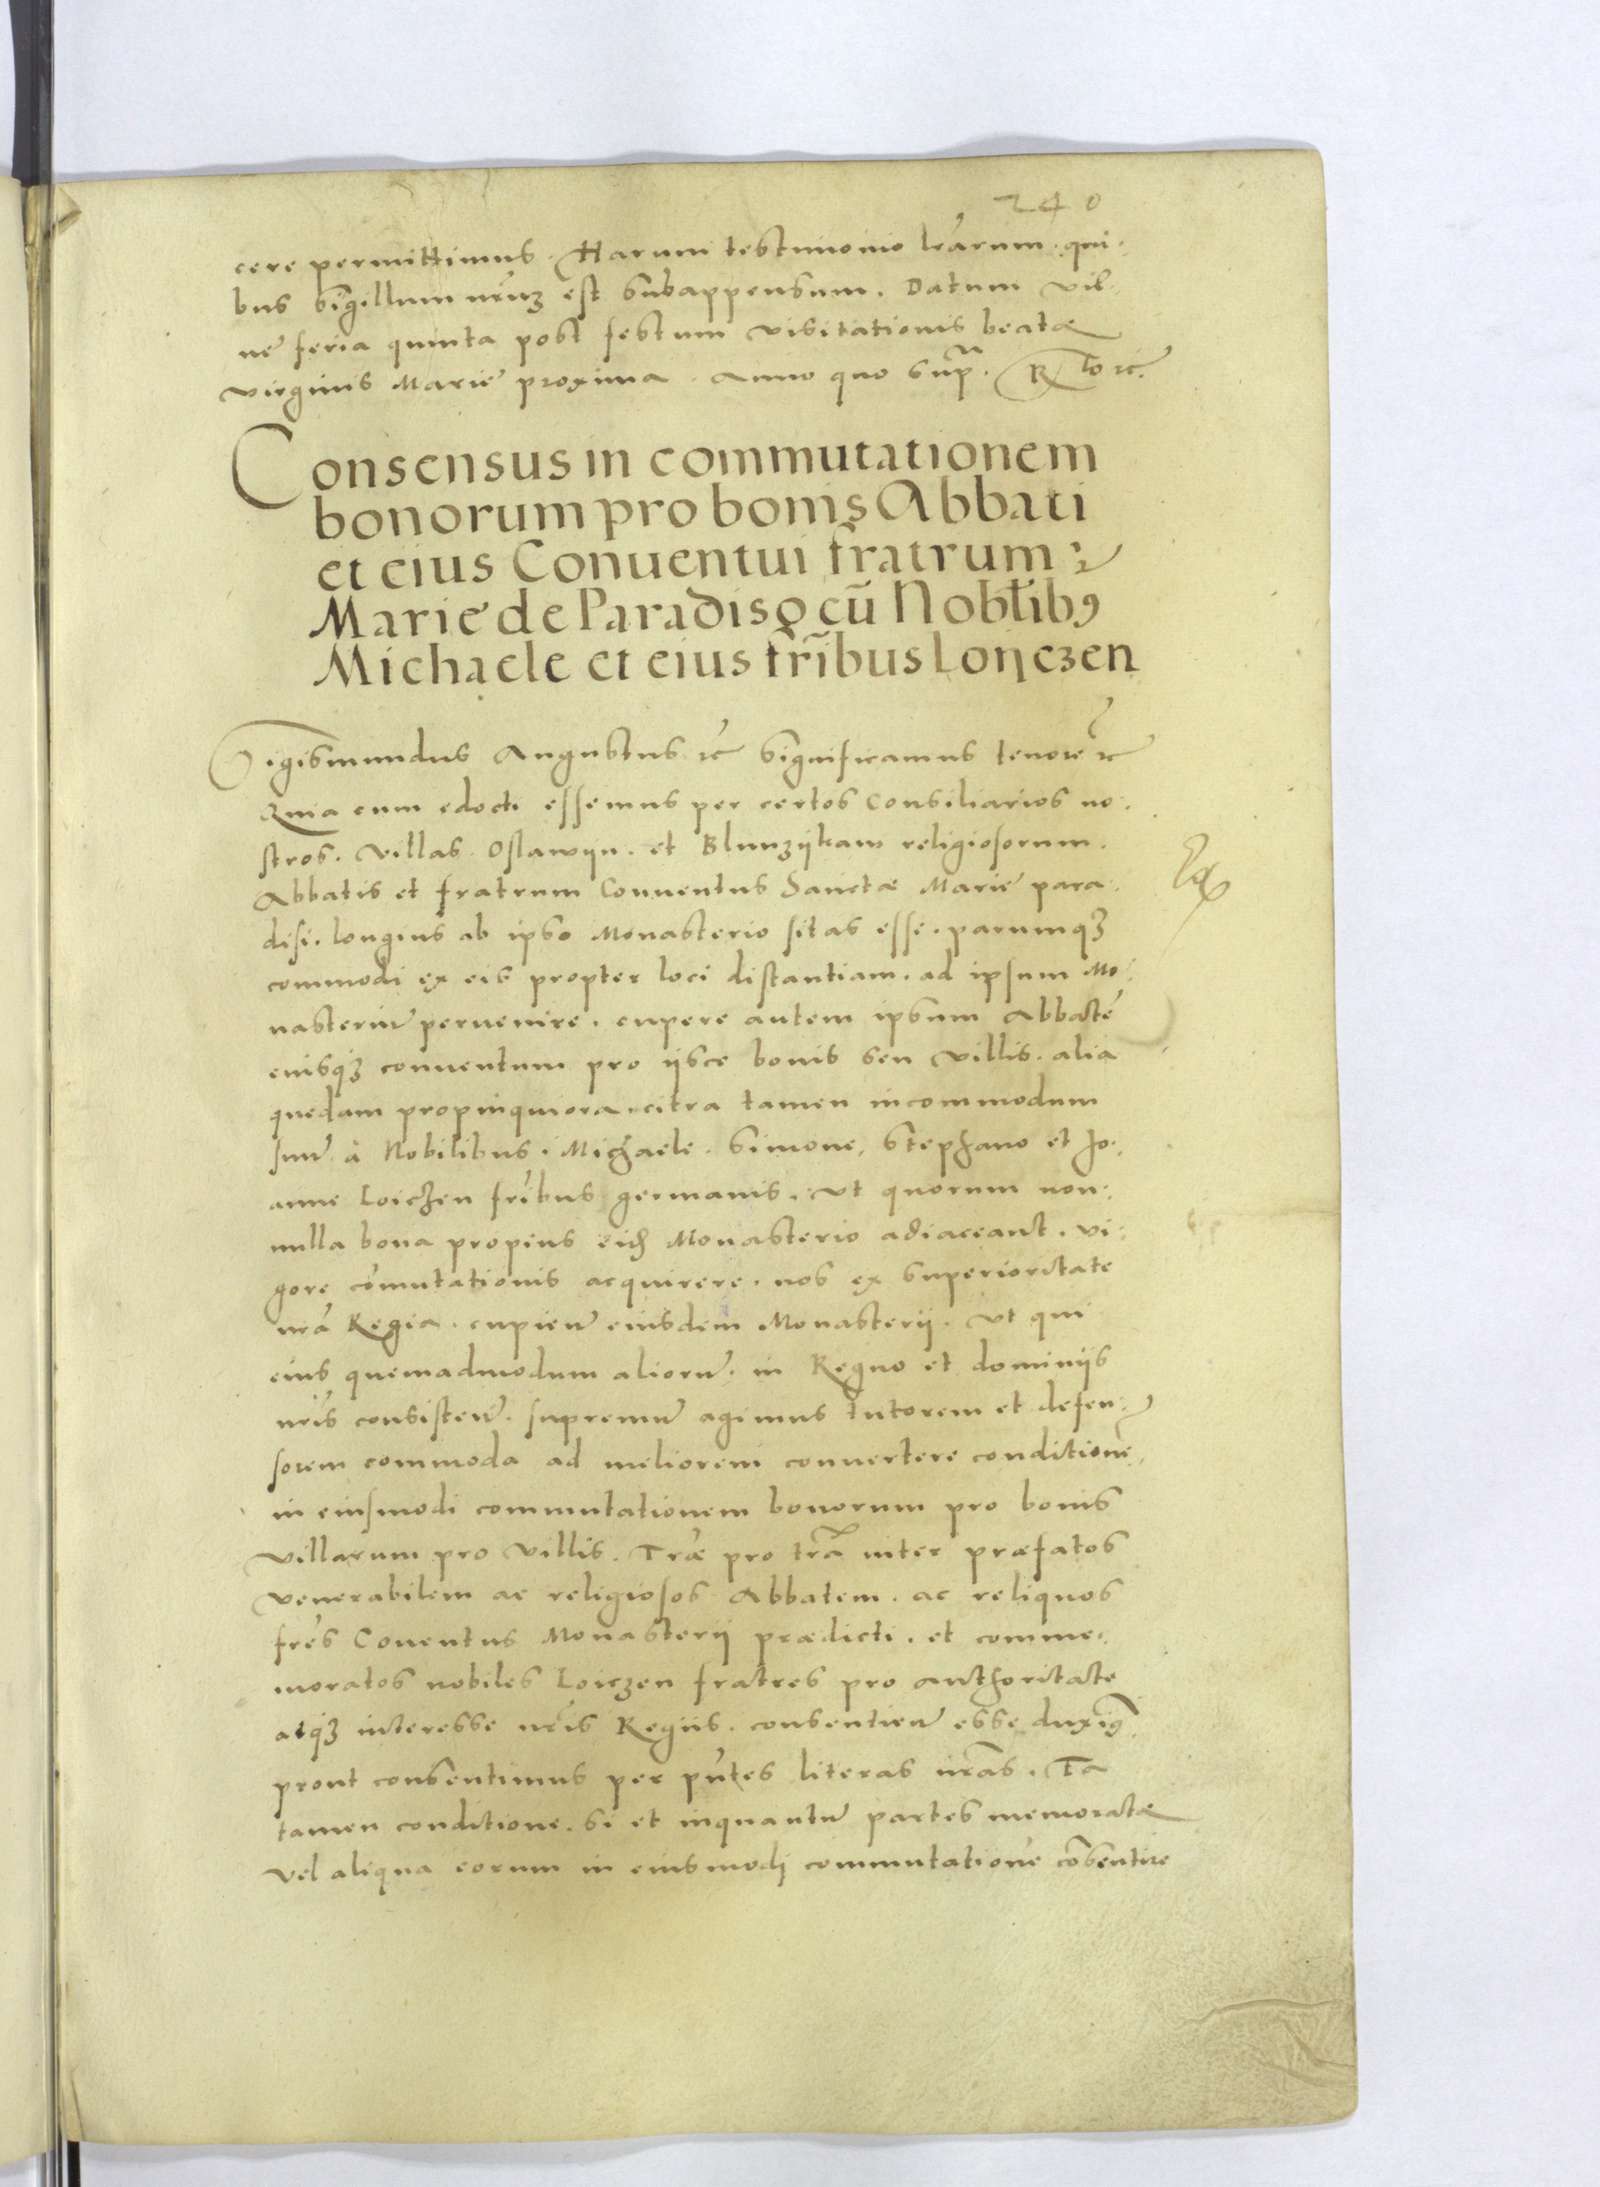 240
cere permittimus. Harum testimonio lrarum. qui-
bus sigillum nrum est subappensum. Datum Vil-
ne feria quinta post festum visitationis beatæ
virginis Marie proxima. Anno quo supra.
Consensus in commutationem
bonorum pro bonis Abbati
et eius Conuentui fratrum
Marie de Paradiso cū Nobilib9
Michaele et eius frībus Loyczen
Sigismundus Augustus rc̄ significamus tenore rc̄
Quia cum edocti essemus per certos Consiliarios no-
stros. Villas. Oslawyn. et Blunzijkaw religiosorum.
Abbatis et fratrum Conuentus Sanctæ Marie para-
disi. longius ab ipso Monasterio sitas esse. parumqȝ
commodi ex eis propter loci distantiam. ad ipsum Mo-
nasteriū peruenire. cupere autem ipsum Abbatē
eiusqȝ conuentum pro ijsce bonis seu villis. alia
quedam propinquiora. citra tamen incommodum
suū. à Nobilibus. Michaele. Simone, Stephano et Jo-
anne Loiczen fribus germanis. Vt quorum non-
nulla bona propius eid Monasterio adiaceant. vi-
gore cōmutationis acquirere. nos ex superioritate
nrā Regia. cupien̄ eiusdem Monasterij. Vt qui
eius quemadmodum aliorū. in Regno et dominijs
nris consisten̄. supremū agimus tutorem et defen-
sorem commoda ad meliorem conuertere conditionē.
in eiusmodi commutationem bonorum pro bonis
villarum pro villis. Træ pro tra inter præfatos
venerabilem ac religiosos Abbatem. ac reliquos
fres Couentus Monasterij prædicti. et comme-
moratos nobiles Loiczen fratres pro authoritate
atqȝ interesse nris Regijs. consentien̄ esse duxim9
prout consentimus per pntes literas nras. Ea
tamen conditione. si et inquantū partes memoratæ
Vel aliqua eorum in eiusmodi commutationē cōsentire